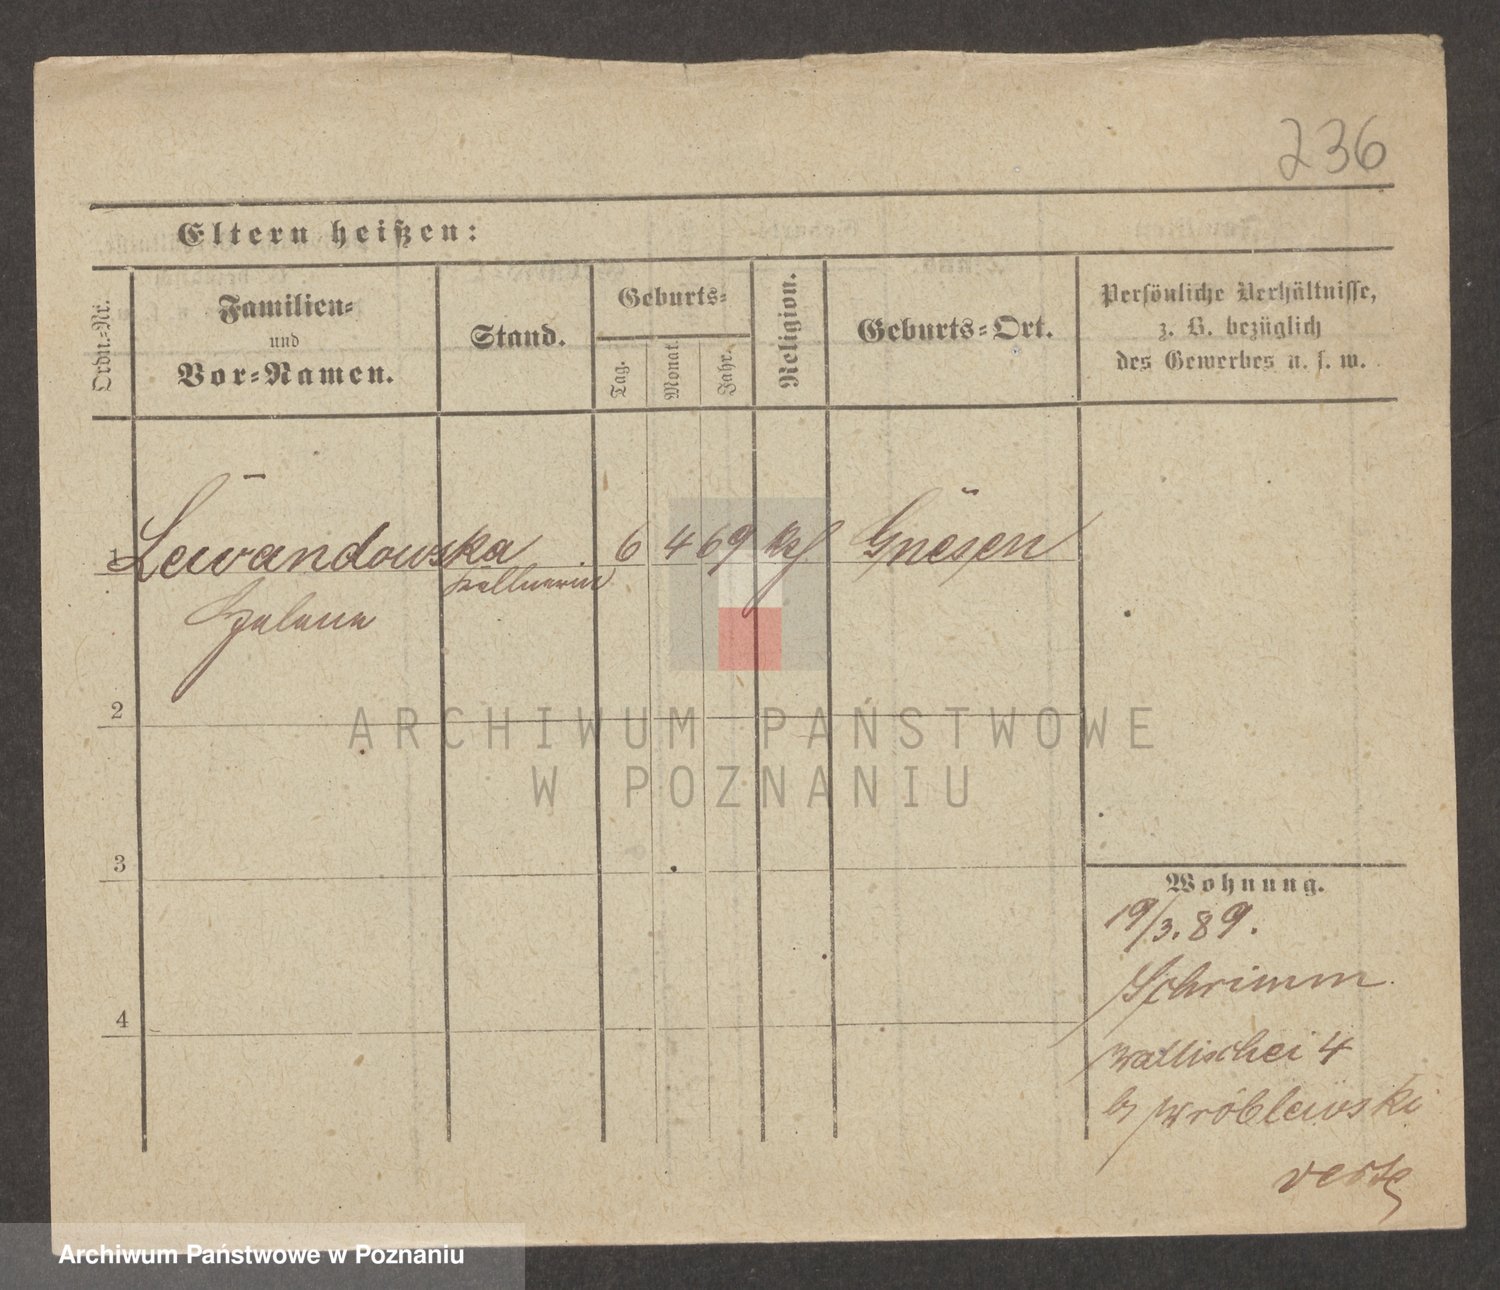 236
Eltern heißen:
Ordn.-Nr.
Familien-
und
Vor-Namen.
Stand.
Geburts-
Tag.
Monat.
Jahr.
Religion.
Geburts-Ort.
Persönliche Verhältnisse,
z. B. bezüglich
des Gewerbes u. s. w.
1 Lewandowska 6 4 69 Gnesen
Kellnerin
Helena
2
3
4
ARCHIWUM PAŃSTWOWE
W POZNANIU
Wohnung.
19/3.89.
Schrimm
Wallischei 4
b Wróblewski
Archiwum Państwowe w Poznaniu